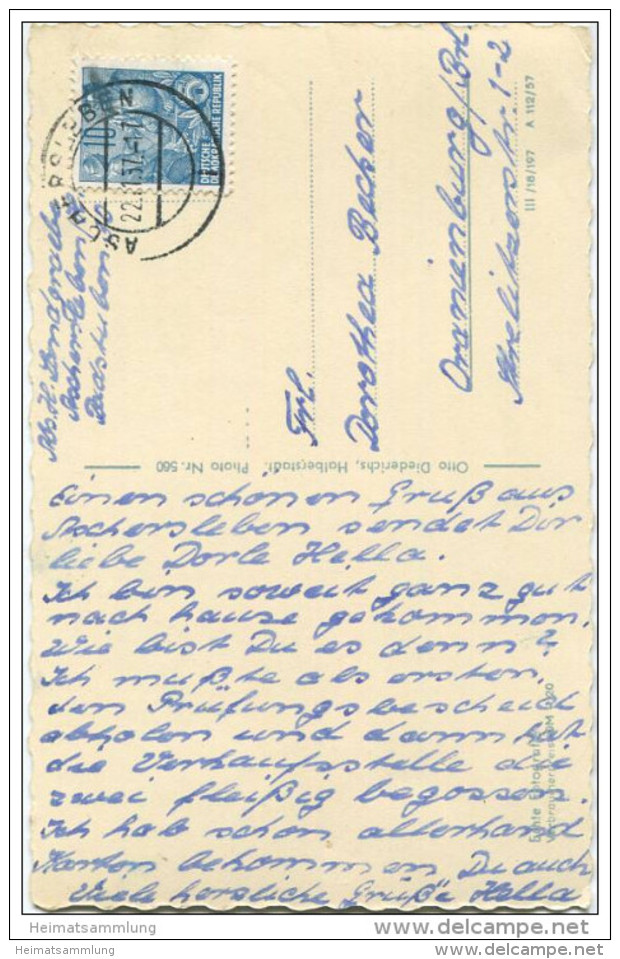 10
DEUTSCHE
DEMOKRATISCHE REPUBLIK
ASCHERSLEBEN
Abs. H.
Aschersleben
Frl.
Dorothea Becker
Oranienburg/Brl.
Strelitzerstr 1-2
III/18/197 A 112/57
Otto Diederichs, Halberstadt, Photo Nr. 560
Einen schönen Gruß aus
Aschersleben sendet Dir
liebe Dorle Hella.
Ich bin soweit ganz gut
nach hause gekommen.
Wie bist Du es denn?
Ich mußte als ersten
den Prüfungsbescheid
abholen und dann
die Verkaufsstelle die
zwei fleißig begossen.
Ich hab schon allerhand
Karten bekommen Du auch
Viele herzliche Grüße Hella
Echte Fotografie
Verbraucherpreis DM 0,20
Heimatsammlung
Heimatsammlung
delcampe.net
delcampe.net